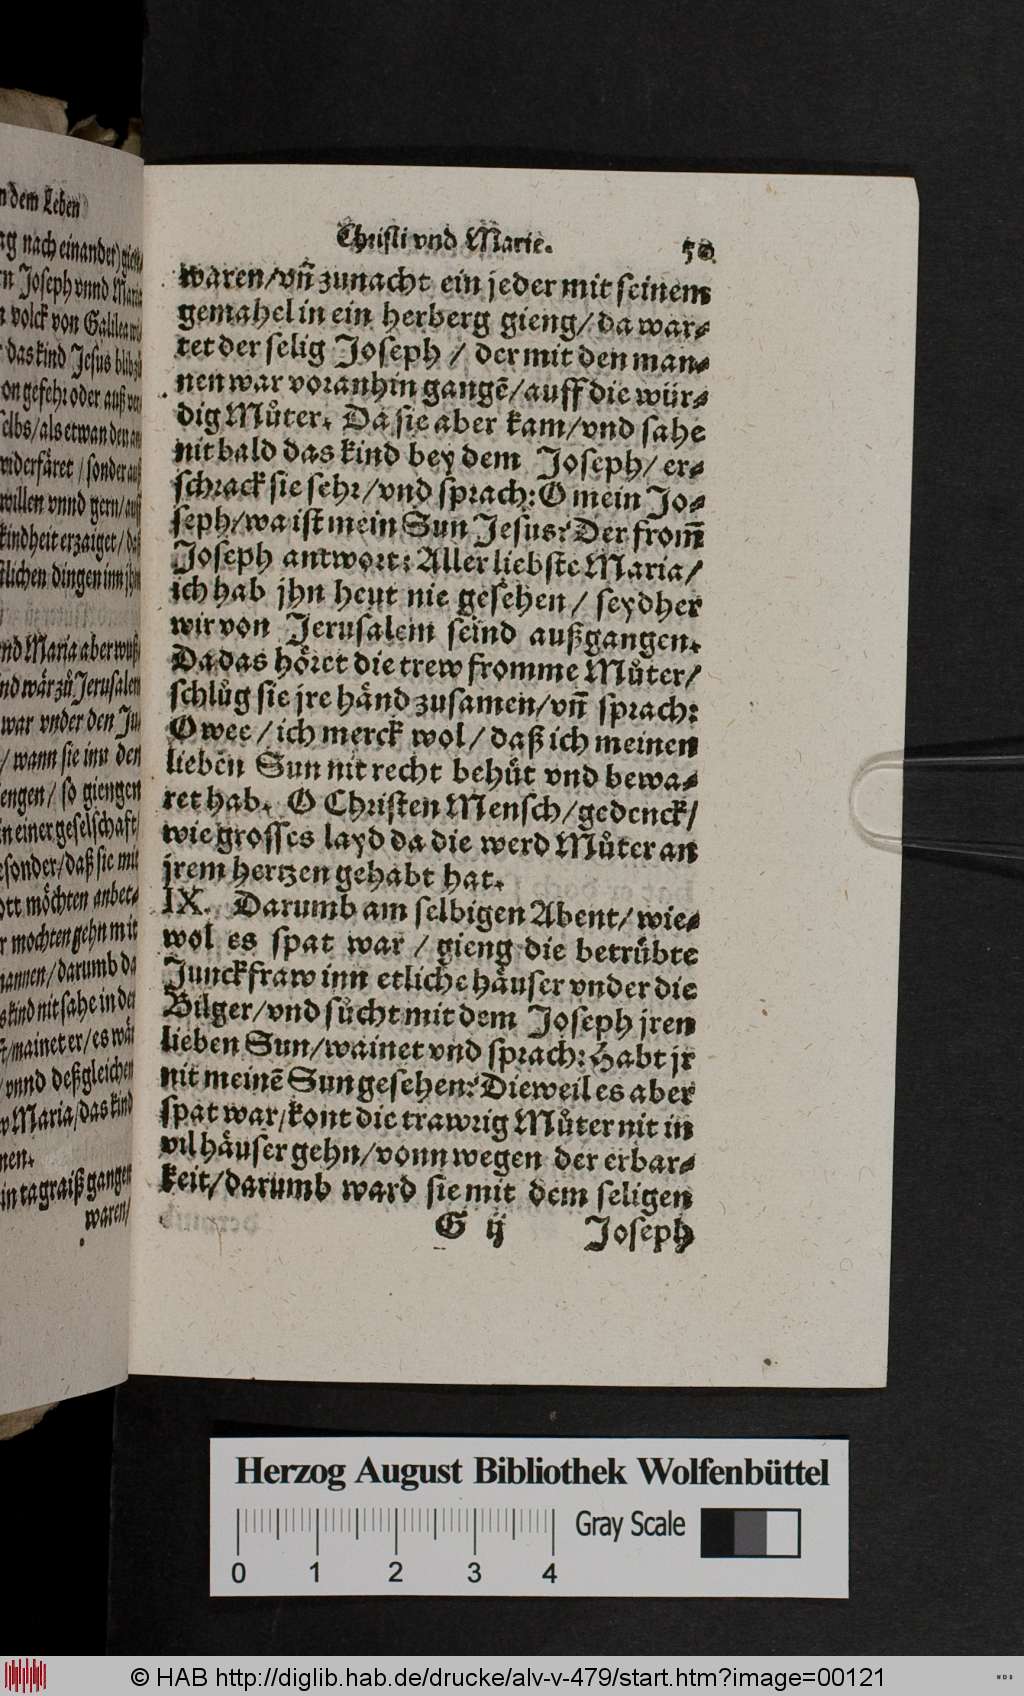 n dem Leben
rg nach einander) gien
rn Joseph vnnd Maria
n volck von Galilea
das kind Jesus blib
on gefehr oder auß
selbs/als etwan den
widerfäret / sonder auß
willen vnnd gern/auff
kindheit erzaiget/
tlichen dingen inn
nd Maria aber
nd wär zů Jerusalem
war vnder den Ju
/ wann sie inn den
engen/ so giengen
in einer geselschafft/
sonder/daß sie mit
ott möchten anbet-
r mochten gehn mit
mannen/darumb da
s kind nit sahe in der
/mainet er/es wär
/vnnd deßgleichen
w Maria/das kind
nen.
in tagraiß gangen
waren/
Christi vnd Marie. 50
waren/vñ zunacht ein jeder mit seinem
gemahel in ein herberg gieng/da war-
tet der selig Joseph / der mit den man-
nen war voranhin gangē/auff die wür-
dig Můter. Da sie aber kam/vnd sahe
nit bald das kind bey dem Joseph/ er-
schrack sie sehr/vnd sprach: O mein Jo-
seph/wa ist mein Sun Jesus? Der from̃
Joseph antwort: Aller liebste Maria/
ich hab jhn heut nie gesehen / seydher
wir von Jerusalem seind außgangen.
Da das höret die trew fromme Můter/
schlůg sie jre händ zusamen/vñ sprach:
O wee / ich merck wol / daß ich meinen
lieben Sun nit recht behůt vnd bewa-
ret hab. O Christen Mensch/gedenck/
wie grosses layd da die werd Můter an
jrem hertzen gehabt hat.
IX. Darumb am selbigen Abent/ wie-
wol es spat war / gieng die betrůbte
Junckfraw inn etliche häuser vnder die
Bilger/vnd sůcht mit dem Joseph jren
lieben Sun/wainet vnd sprach: Habt jr
nit meinē Sun gesehen? Dieweil es aber
spat war/kont die trawrig Můter nit in
vil häuser gehn/vonn wegen der erbar-
keit/darumb ward sie mit dem seligen
G ij Joseph
Herzog August Bibliothek Wolfenbüttel
0 1 2 3 4 Gray Scale
© HAB http://diglib.hab.de/drucke/alv-v-479/start.htm?image=00121